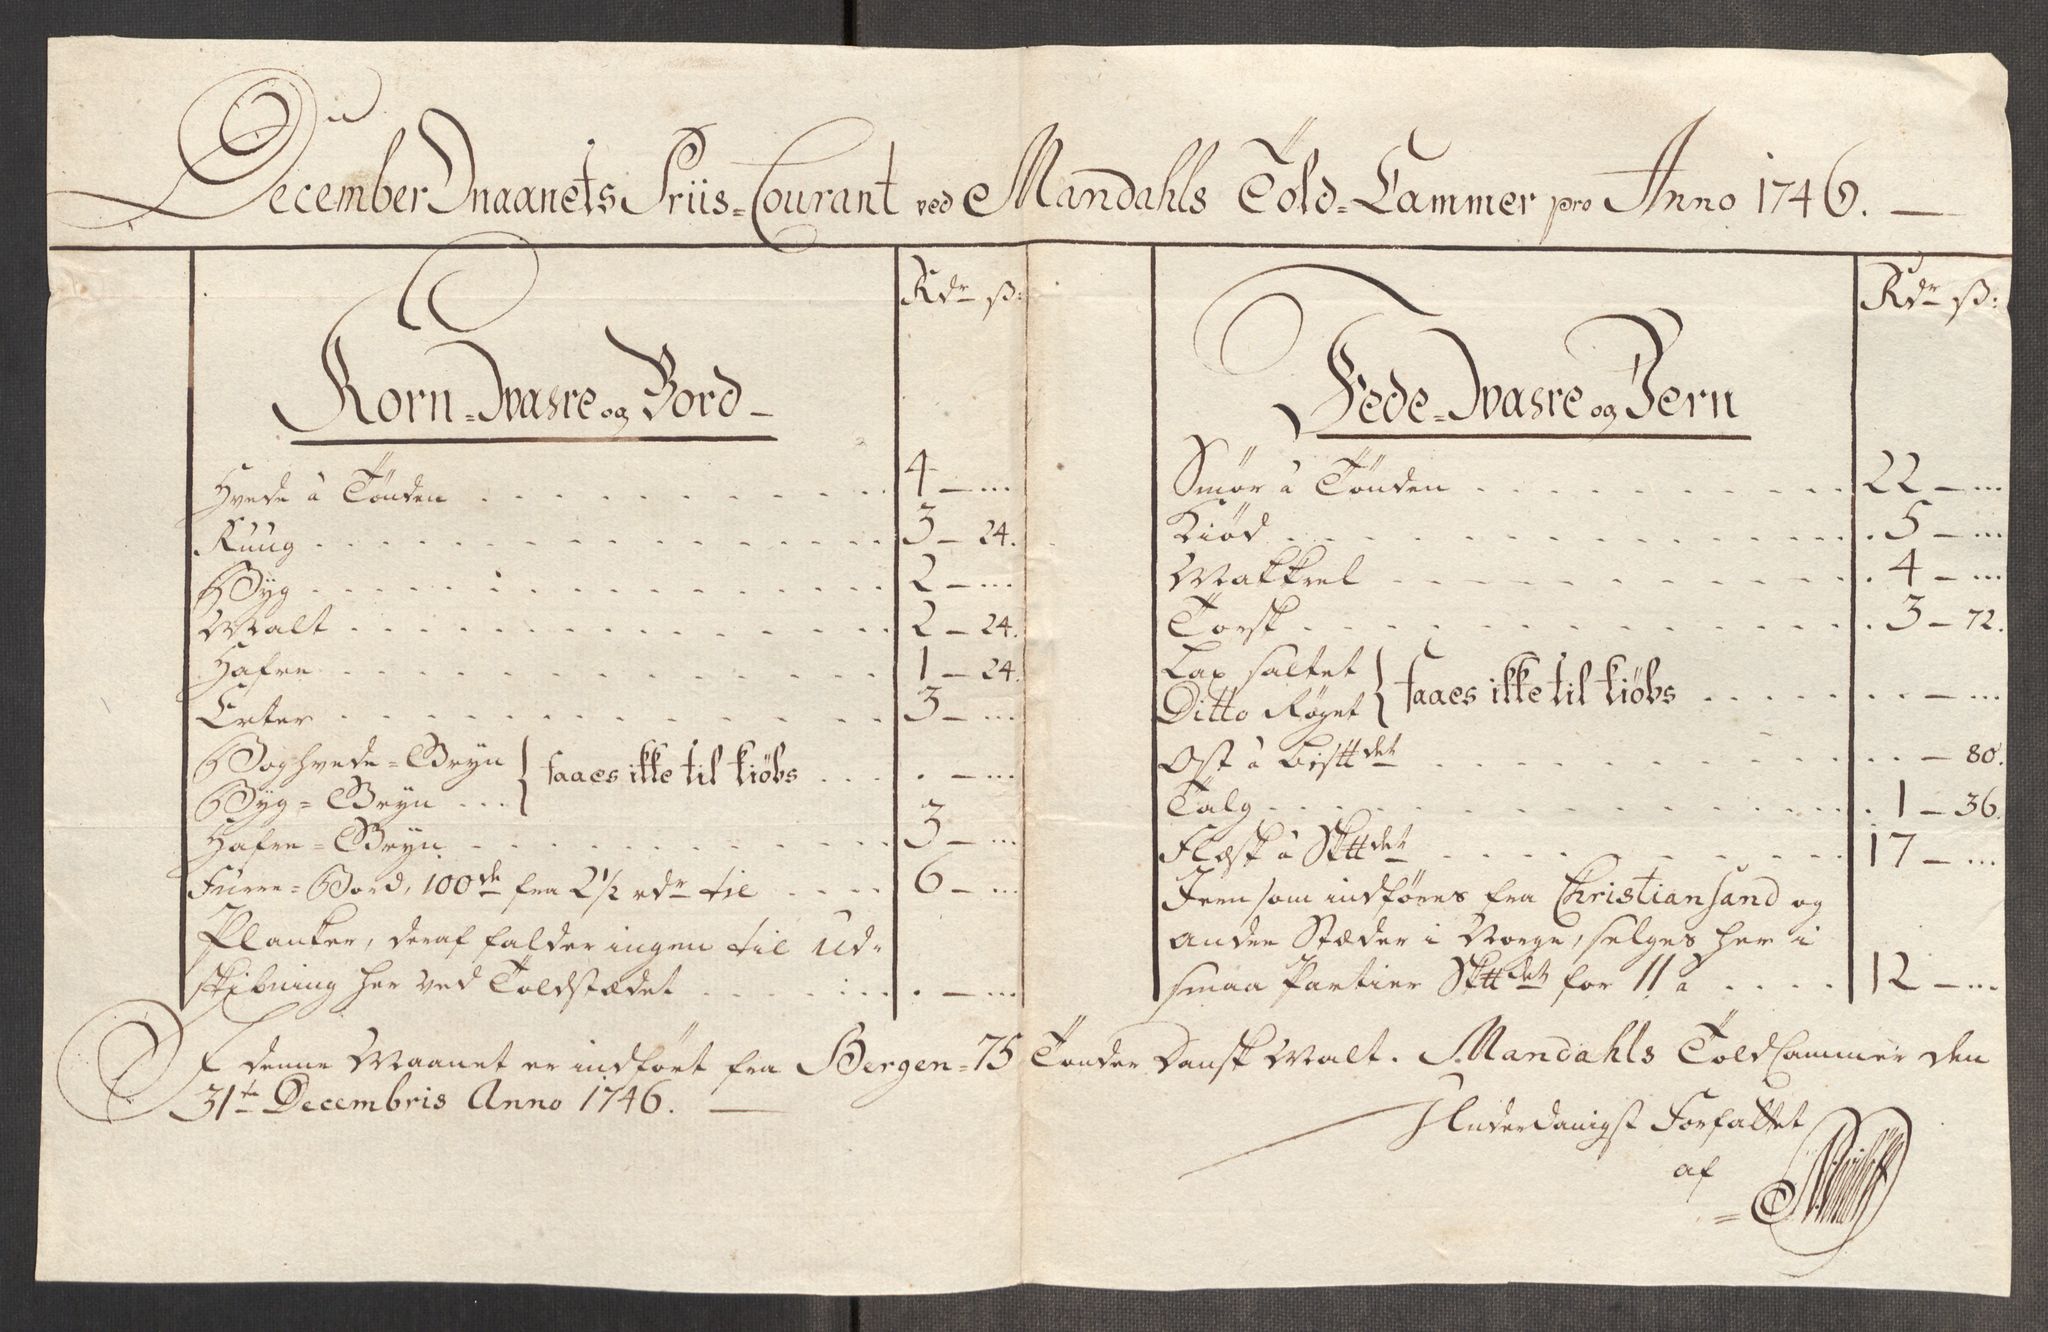 December Maanets Priis=Courant ved Mandahls Told=Cammer pro Anno 1746.
Rdr ß:
Korn=Vahre og Bord
Hvede à Tönden 4 – ...
Ruug 3 – 24.
Byg 2 – ...
Malt 2 – 24.
Hafre 1 – 24.
Erter 3 – ...
Boghvede=Gryn
Byg=Gryn } faaes ikke til kiöbs . – ...
Hafre=Gryn 3 – ...
Furre=Bord, 100de fra 2 1/2 rdr til 6 – ...
Planker, deraf falder ingen til Ud-
skibning her ved Toldstædet . – ...
Rdr ß:
Fede=Vahre og Jern
Smör à Tönden 22 – ...
Kiöd 5 – ...
Makkrel 4 – ...
Torsk 3 – 72.
Lax saltet
Ditto Röget } faaes ikke til kiöbs . – ...
Ost à Bisttdet . – 80.
Talg 1 – 36.
Flæsk à Skttdet 17 – ...
Jern som indföres fra Christiansand og
andre Stæder i Norge, selges her i
smaa Partier Skttdet for 11 à 12 – ...
I denne Maanet er indfört fra Bergen=75 Tönder Dansk Malt. Mandahls ToldCammer den
31te Decembris Anno 1746.
Underdanigst Forfattet
af